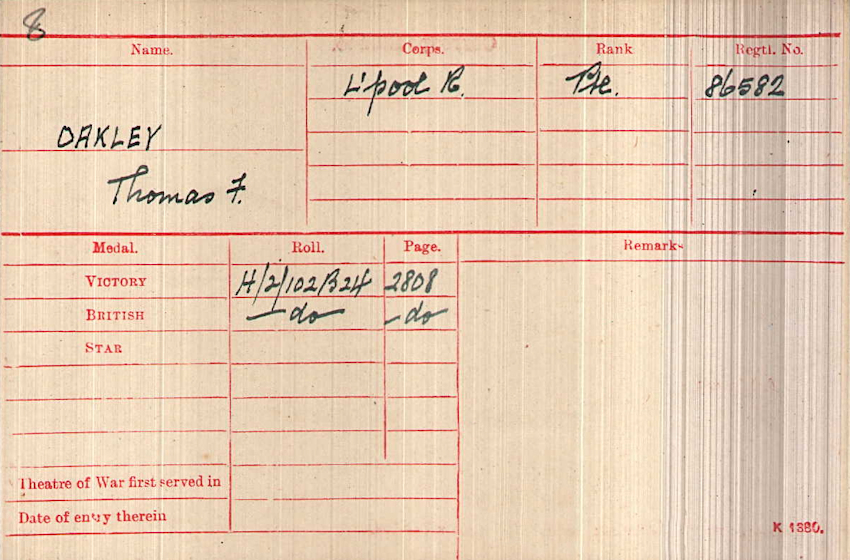 8
Name. Corps. Rank Regtl. No.
L'pool R. Pte. 86582
OAKLEY
Thomas F.
Medal. Roll. Page. Remarks
VICTORY H/2/102B24 2808
BRITISH — do — — do
STAR
Theatre of War first served in
Date of entry therein
K 1380.